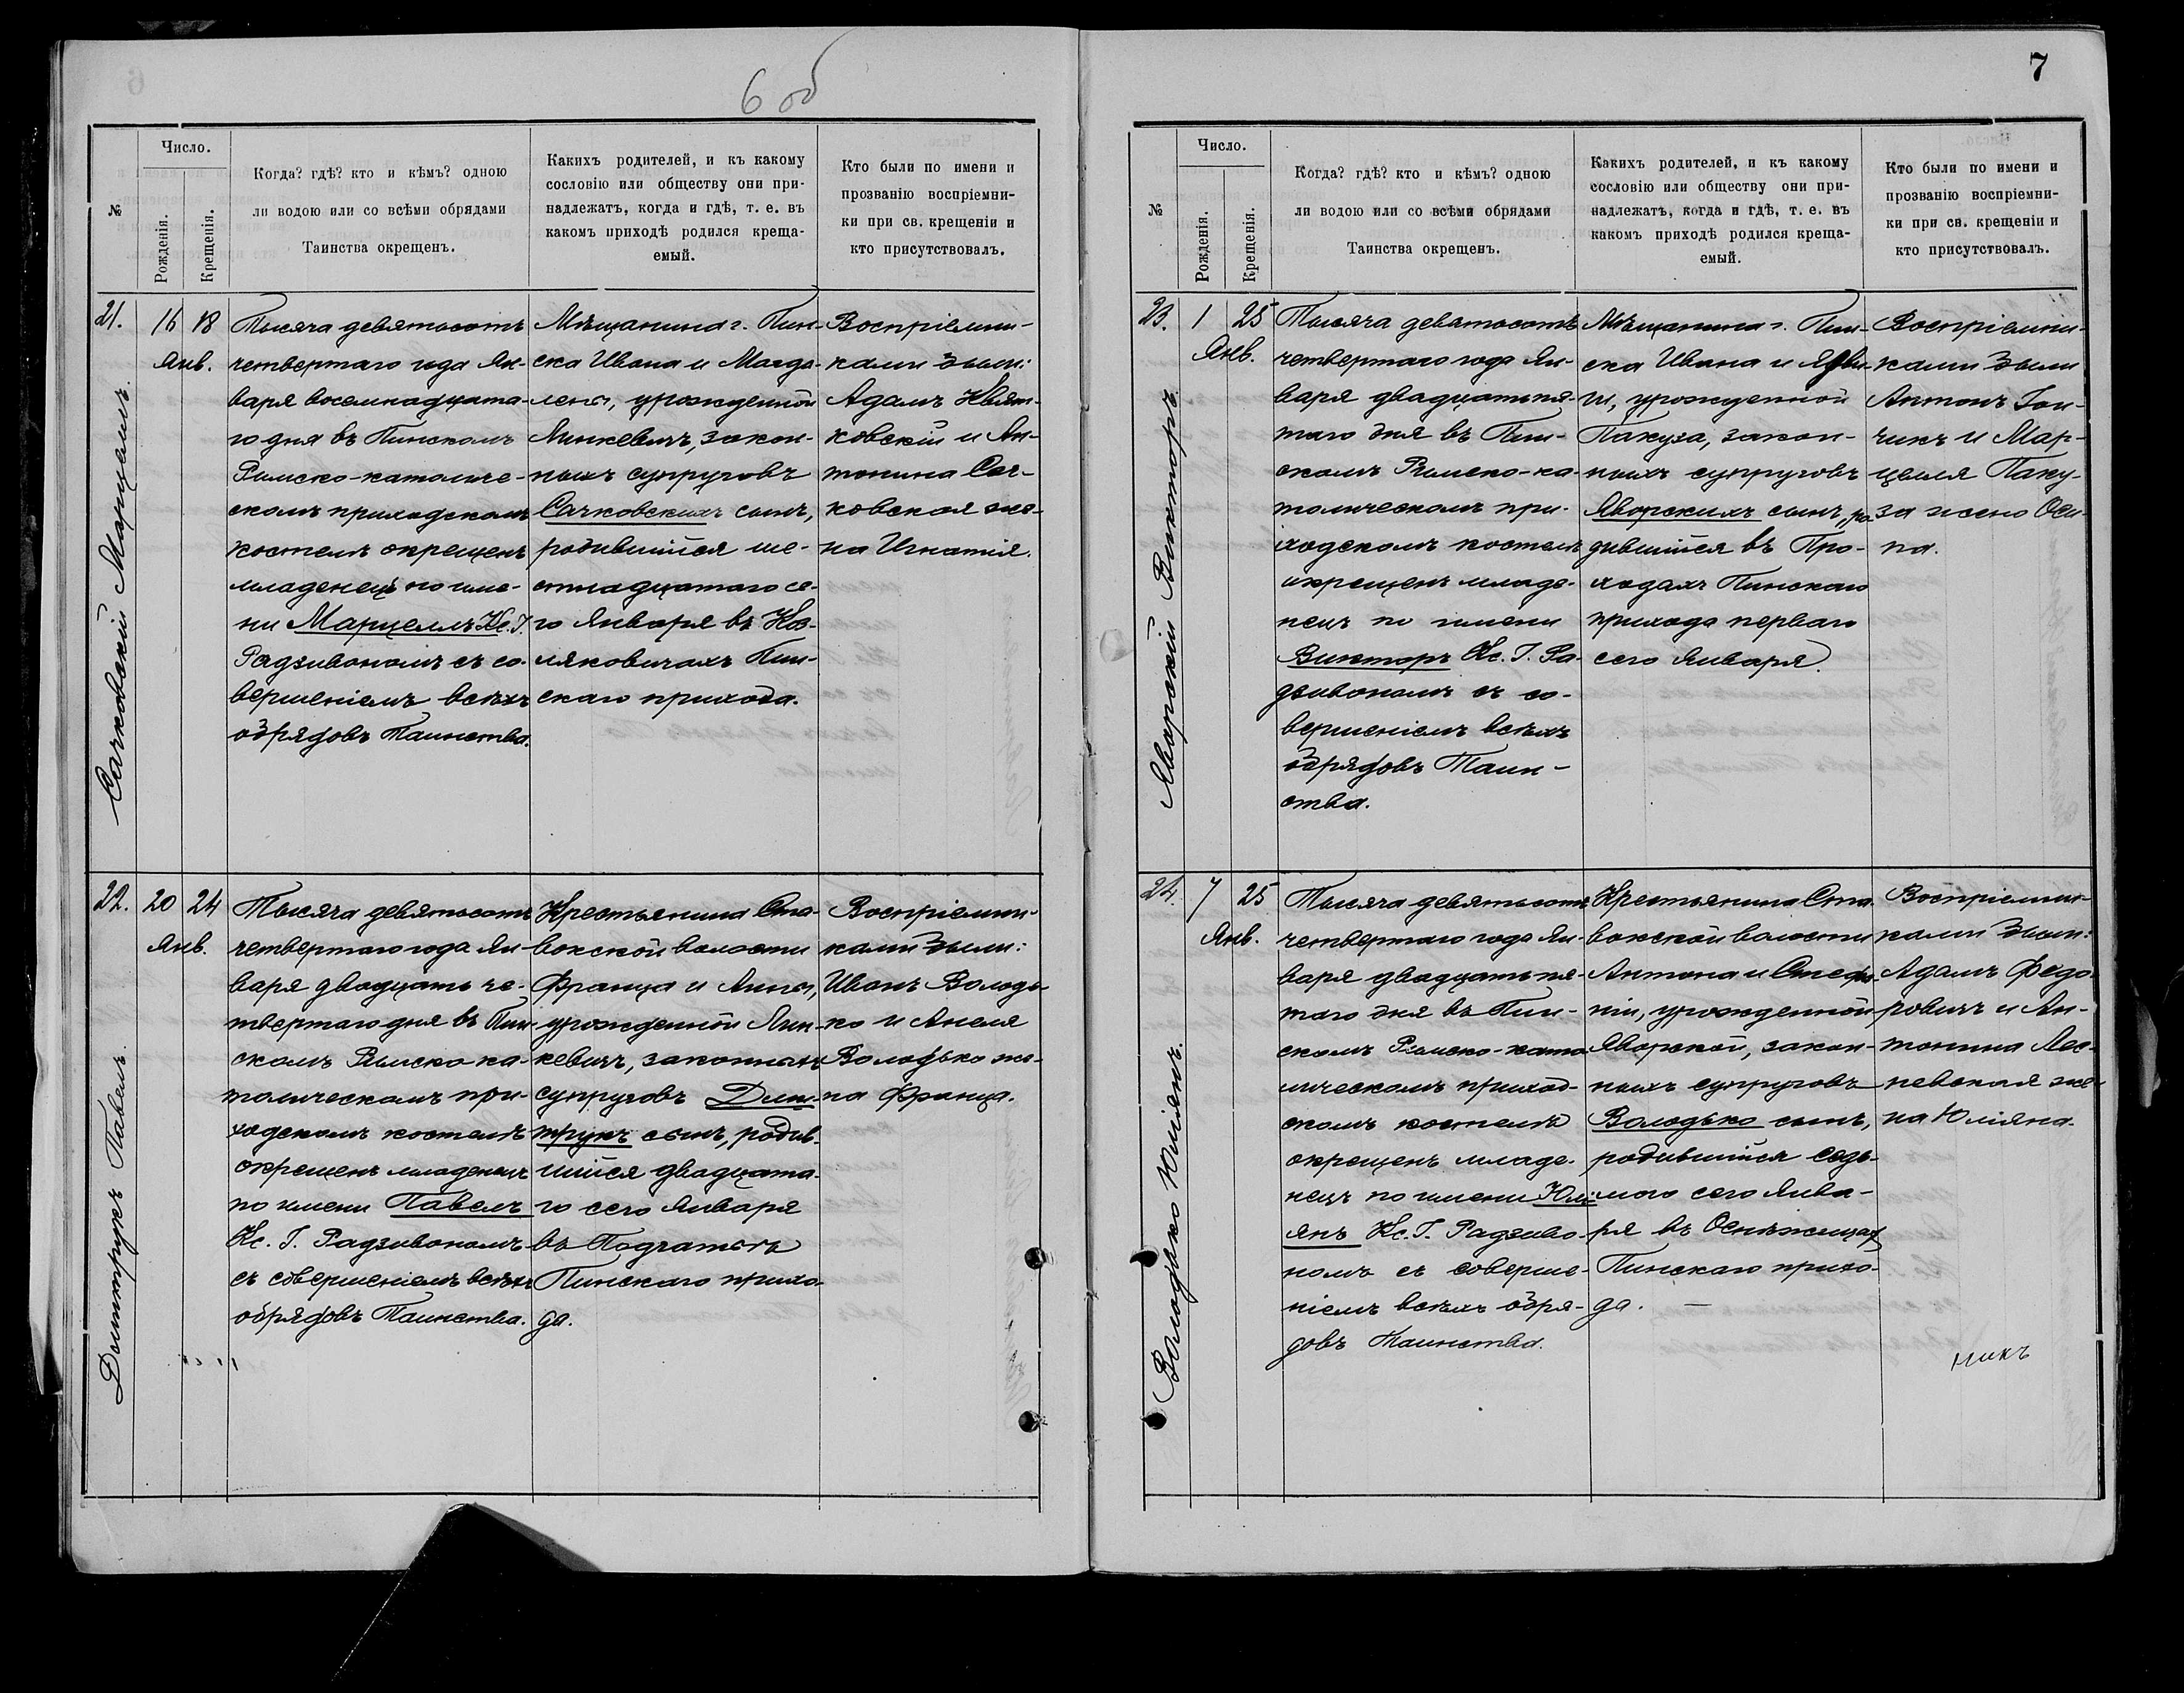 6 об
№
Число.
Рожденія.
Крещенія.
Когда? гдѣ? кто и кѣмъ? одною
ли водою или со всѣми обрядами
Таинства окрещенъ.
Какихъ родителей, и къ какому
сословію или обществу они при-
надлежатъ, когда и гдѣ, т. е. въ
какомъ приходѣ родился креща-
емый.
Кто были по имени и
прозванію воспріемни-
ки при св. крещеніи и
кто присутствовалъ.
21.
Сачковскій Марцелъ.
16 18
Янв.
Тысяча девятьсотъ
четвертаго года Ян-
варя восемнадцата-
го дня въ Пинскомъ
Римско-католиче-
скомъ приходскомъ
костелѣ окрещенъ
младенецъ по име-
ни Марцеллъ Кс. І.
Радзивономъ съ со-
вершеніемъ всѣхъ
обрядовъ Таинства.
Мѣщанина г. Пин-
ска Ивана и Магда-
лены, урожденной
Линкевичъ, закон-
ныхъ супруговъ
Сачковскихъ сынъ,
родившійся ше-
стнадцатаго се-
го Января въ Коз-
ляковичахъ Пин-
скаго прихода.
Воспріемни-
ками были:
Адамъ Квят-
ковскій и Ан-
тонина Сач-
ковская же-
на Игнатія.
22.
Дмитрукъ Павелъ.
20 24
Янв.
Тысяча девятьсотъ
четвертаго года Ян-
варя двадцать че-
твертаго дня въ Пин-
скомъ Римско ка-
толическомъ при-
ходскомъ костелѣ
окрещенъ младенецъ
по имени Павелъ
Кс. І. Радзивономъ
съ совершеніемъ всѣхъ
обрядовъ Таинства.
Крестьянина Ста-
вокской волости
Франца и Анны,
урожденной Лин-
кевичъ, законныхъ
супруговъ Дми-
трукъ сынъ, родив-
шійся двадцата-
го сего Января
въ Подгатьѣ
Пинскаго прихо-
да.
Воспріемни-
ками были:
Иванъ Володь-
ко и Анеля
Володько же-
на Франца.
7
№
Число.
Рожденія.
Крещенія.
Когда? гдѣ? кто и кѣмъ? одною
ли водою или со всѣми обрядами
Таинства окрещенъ.
Какихъ родителей, и къ какому
сословію или обществу они при-
надлежатъ, когда и гдѣ, т. е. въ
какомъ приходѣ родился креща-
емый.
Кто были по имени и
прозванію воспріемни-
ки при св. крещеніи и
кто присутствовалъ.
23.
Яворскій Викторъ.
1 25
Янв.
Тысяча девятьсотъ
четвертаго года Ян-
варя двадцатьпя-
таго дня въ Пин-
скомъ Римско-ка-
толическомъ при-
ходскомъ костелѣ
окрещенъ младе-
нецъ по имени
Викторъ Кс. І. Ра-
дзивономъ съ со-
вершеніемъ всѣхъ
обрядовъ Таин-
ства.
Мѣщанина г. Пин-
ска Ивана и Ядви-
ги, урожденной
Пакуза, закон-
ныхъ супруговъ
Яворскихъ сынъ, ро-
дившійся въ Про-
ходахъ Пинскаго
прихода перваго
сего Января.
Воспріемни-
ками были
Антонъ Гон-
чикъ и Мар-
целя Паку-
за жено Оси-
па.
24.
Володько Юліянъ.
7 25
Янв.
Тысяча девятьсотъ
четвертаго года Ян-
варя двадцатьпя-
таго дня въ Пин-
скомъ Римско-като-
лическомъ приход-
скомъ костелѣ
окрещенъ младе-
нецъ по имени Юлі-
янъ Кс. І. Радзиво-
номъ съ соверше-
ніемъ всѣхъ обря-
довъ Таинства.
Крестьянина Ста-
вокской волости
Антона и Стефа-
ніи, урожденной
Яворской, закон-
ныхъ супруговъ
Володько сынъ,
родившійся седь-
мого сего Янва-
ря въ Оснѣжицахъ
Пинскаго прихо-
да. —
Воспріемни-
ками были:
Адамъ Федо-
ровичъ и Ан-
тонина Лес-
невская же-
на Юліяна.